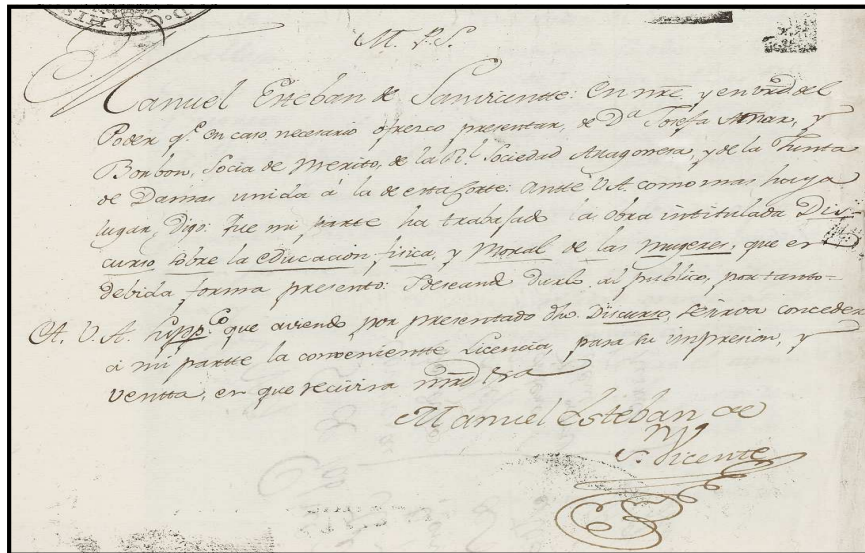 M. P. S.
Manuel Esteban de Sanvicente: En nre, y en vrd del
Poder q.e en caso necesario ofresco presentar, de D.a Josefa Amar, y
Borbon, Socia de Merito, de la Rl. Sociedad Aragonesa, y de la Junta
de Damas unida á la de esta Corte: antte V.A. como mas haya
lugar, Digo: Que mi parte ha trabajado la obra intitulada Dis-
curso sobre la educacion fisica, y Moral de las mugeres, que en
debida forma presento: I deseando darlo, al publico, por tanto-
A. V. A. Supp.co que aviendo por presentado dho. Discurso, se sirva conceder
a mi partte la convenientte Licencia, para su impresion, y
ventta, en que recivira mrd
Manuel Esteban de
S. Vicente